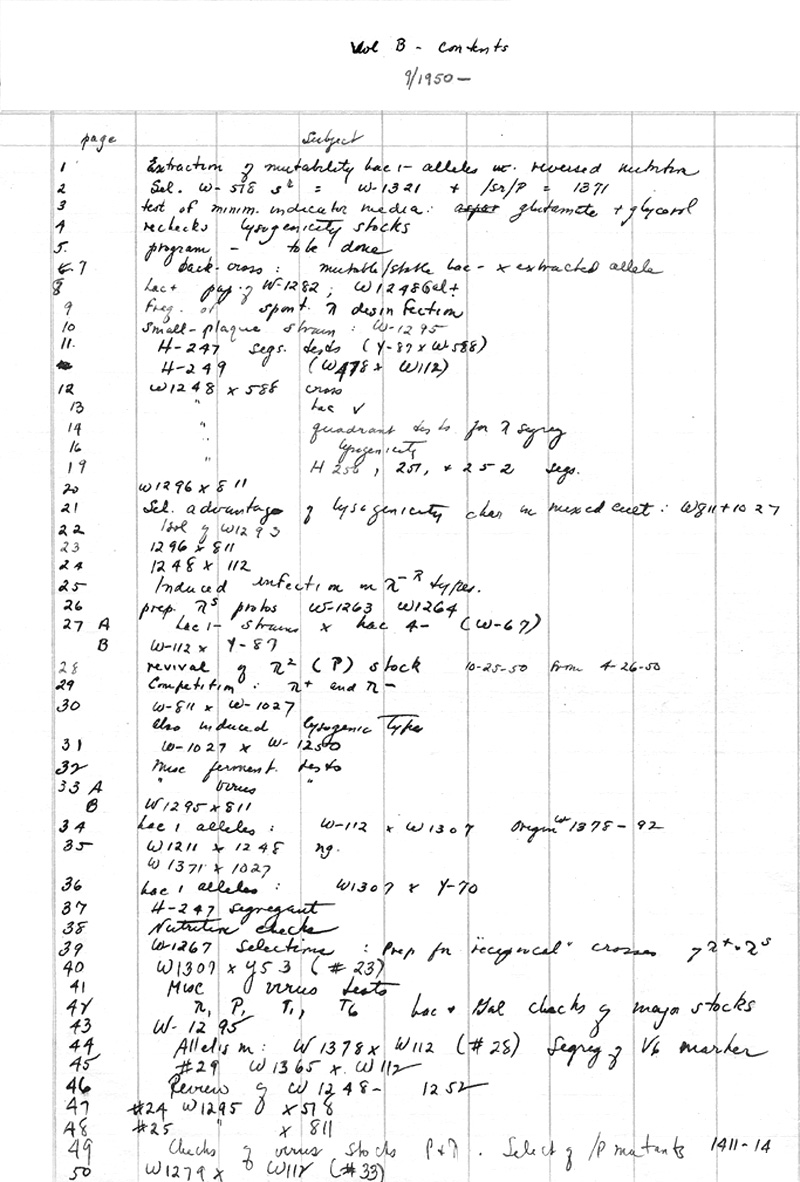 Vol B - Contents
9/1950 —
page Subject
1 Extraction of mutability Lac 1- alleles in reversed nutrition
2 Sel. W-518 Sʳ = W-1321 + /Sr/P = 1371
3 test of minim. indicator media: aspar glutamate + glycerol
4 rechecks lysogenicity stocks
5. program - to be done
6-7 back-cross: mutable/stable Lac- x extracted allele
8 Lac+ pap. of W-1282; W1248Gal+
9 Freq. of spont. λ desinfection
10 Small-plaque strain: W-1295
11. H-247 segs. tests (Y-87 x W-588)
H-249 (W478 x W112)
12 W1248 x 588 cross
13 " Lac v
14 " quadrant tests for λ segreg
16 " lysogenicity
19 " H 250, 251, + 252 segs.
20 W1296 x 811
21 Sel. advantage of lysogenicity char in mixed cult: W811+1027
22 Isol of W1293
23 1296 x 811
24 1248 x 112
25 Induced infection in λ-ᴿ types.
26 prep. λˢ protos W-1263 W1264
27 A Lac1- strains x Lac 4- (W-67)
B W-112 x Y-87
28 revival of λ² (P) stock 10-25-50 from 4-26-50
29 Competition: λ+ and λ-
30 W-811 x W-1027
Also induced lysogenic types
31 W-1027 x W-1250
32 Misc ferment. tests
33 A " virus "
B W1295 x 811
34 Lac 1 alleles: W-112 x W1307 Origin 1378-92
35 W1211 x 1248 ng.
W1371 x 1027
36 Lac 1 alleles: W1307 x Y-70
37 H-247 segregant
38 Nutrition checks
39 W-1267 Selections: Prep for "reciprocal" crosses of λ+ · λˢ
40 W1307 x Y53 (#23)
41 Misc virus tests
42 λ, P, T1, T6 Lac + Gal checks of major stocks
43 W-1295
44 Allelism: W1378 x W112 (#28) Segreg of V6 marker
45 #29 W1365 x W112
46 Review of W1248-1252
47 #24 W1295 x 518
48 #25 " x 811
49 Checks of virus stocks P + λ. Select of /P mutants 1411-14
50 W1279 x W112 (#33)